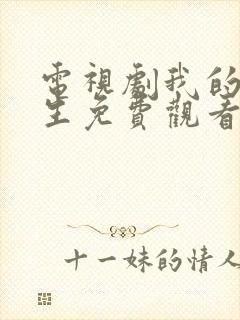 電視劇我的
生免費觀看
十一妹的情人